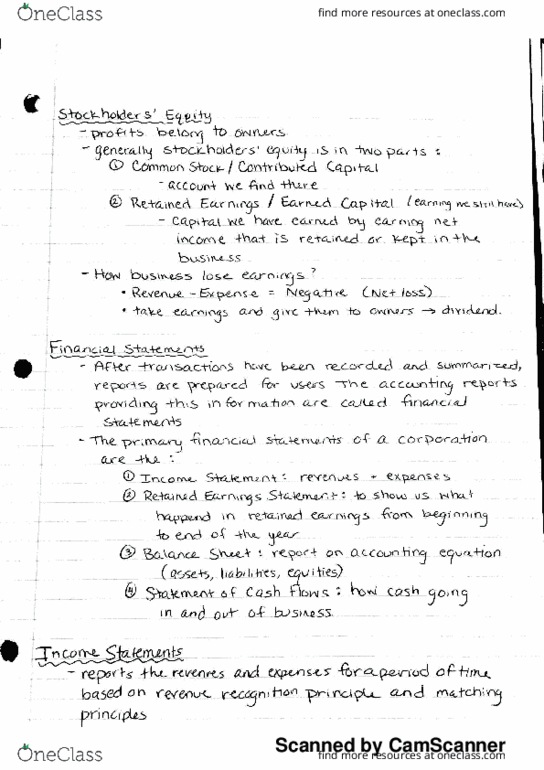 OneClass
find more resources at oneclass.com
Stockholders' Equity
- profits belong to owners
- generally stockholders' equity is in two parts :
① Common Stock / Contributed Capital
- account we find there
② Retained Earnings / Earned Capital (earning we still have)
- Capital we have earned by earning net
income that is retained or kept in the
business
- How business lose earnings?
• Revenue - Expense = Negative (Net loss)
• take earnings and give them to owners → dividend.
Financial Statements
- After transactions have been recorded and summarized,
reports are prepared for users The accounting reports
providing this information are called financial
statements
- The primary financial statements of a corporation
are the :
① Income Statement : revenues + expenses
② Retained Earnings Statement : to show us what
happend in retained earnings from beginning
to end of the year
③ Balance Sheet : report on accounting equation
(assets, liabilities, equities)
④ Statement of Cash Flows : how cash going
in and out of business
Income Statements
- reports the revenues and expenses for a period of time
based on revenue recognition principle and matching
principles
Scanned by CamScanner
OneClass
find more resources at oneclass.com